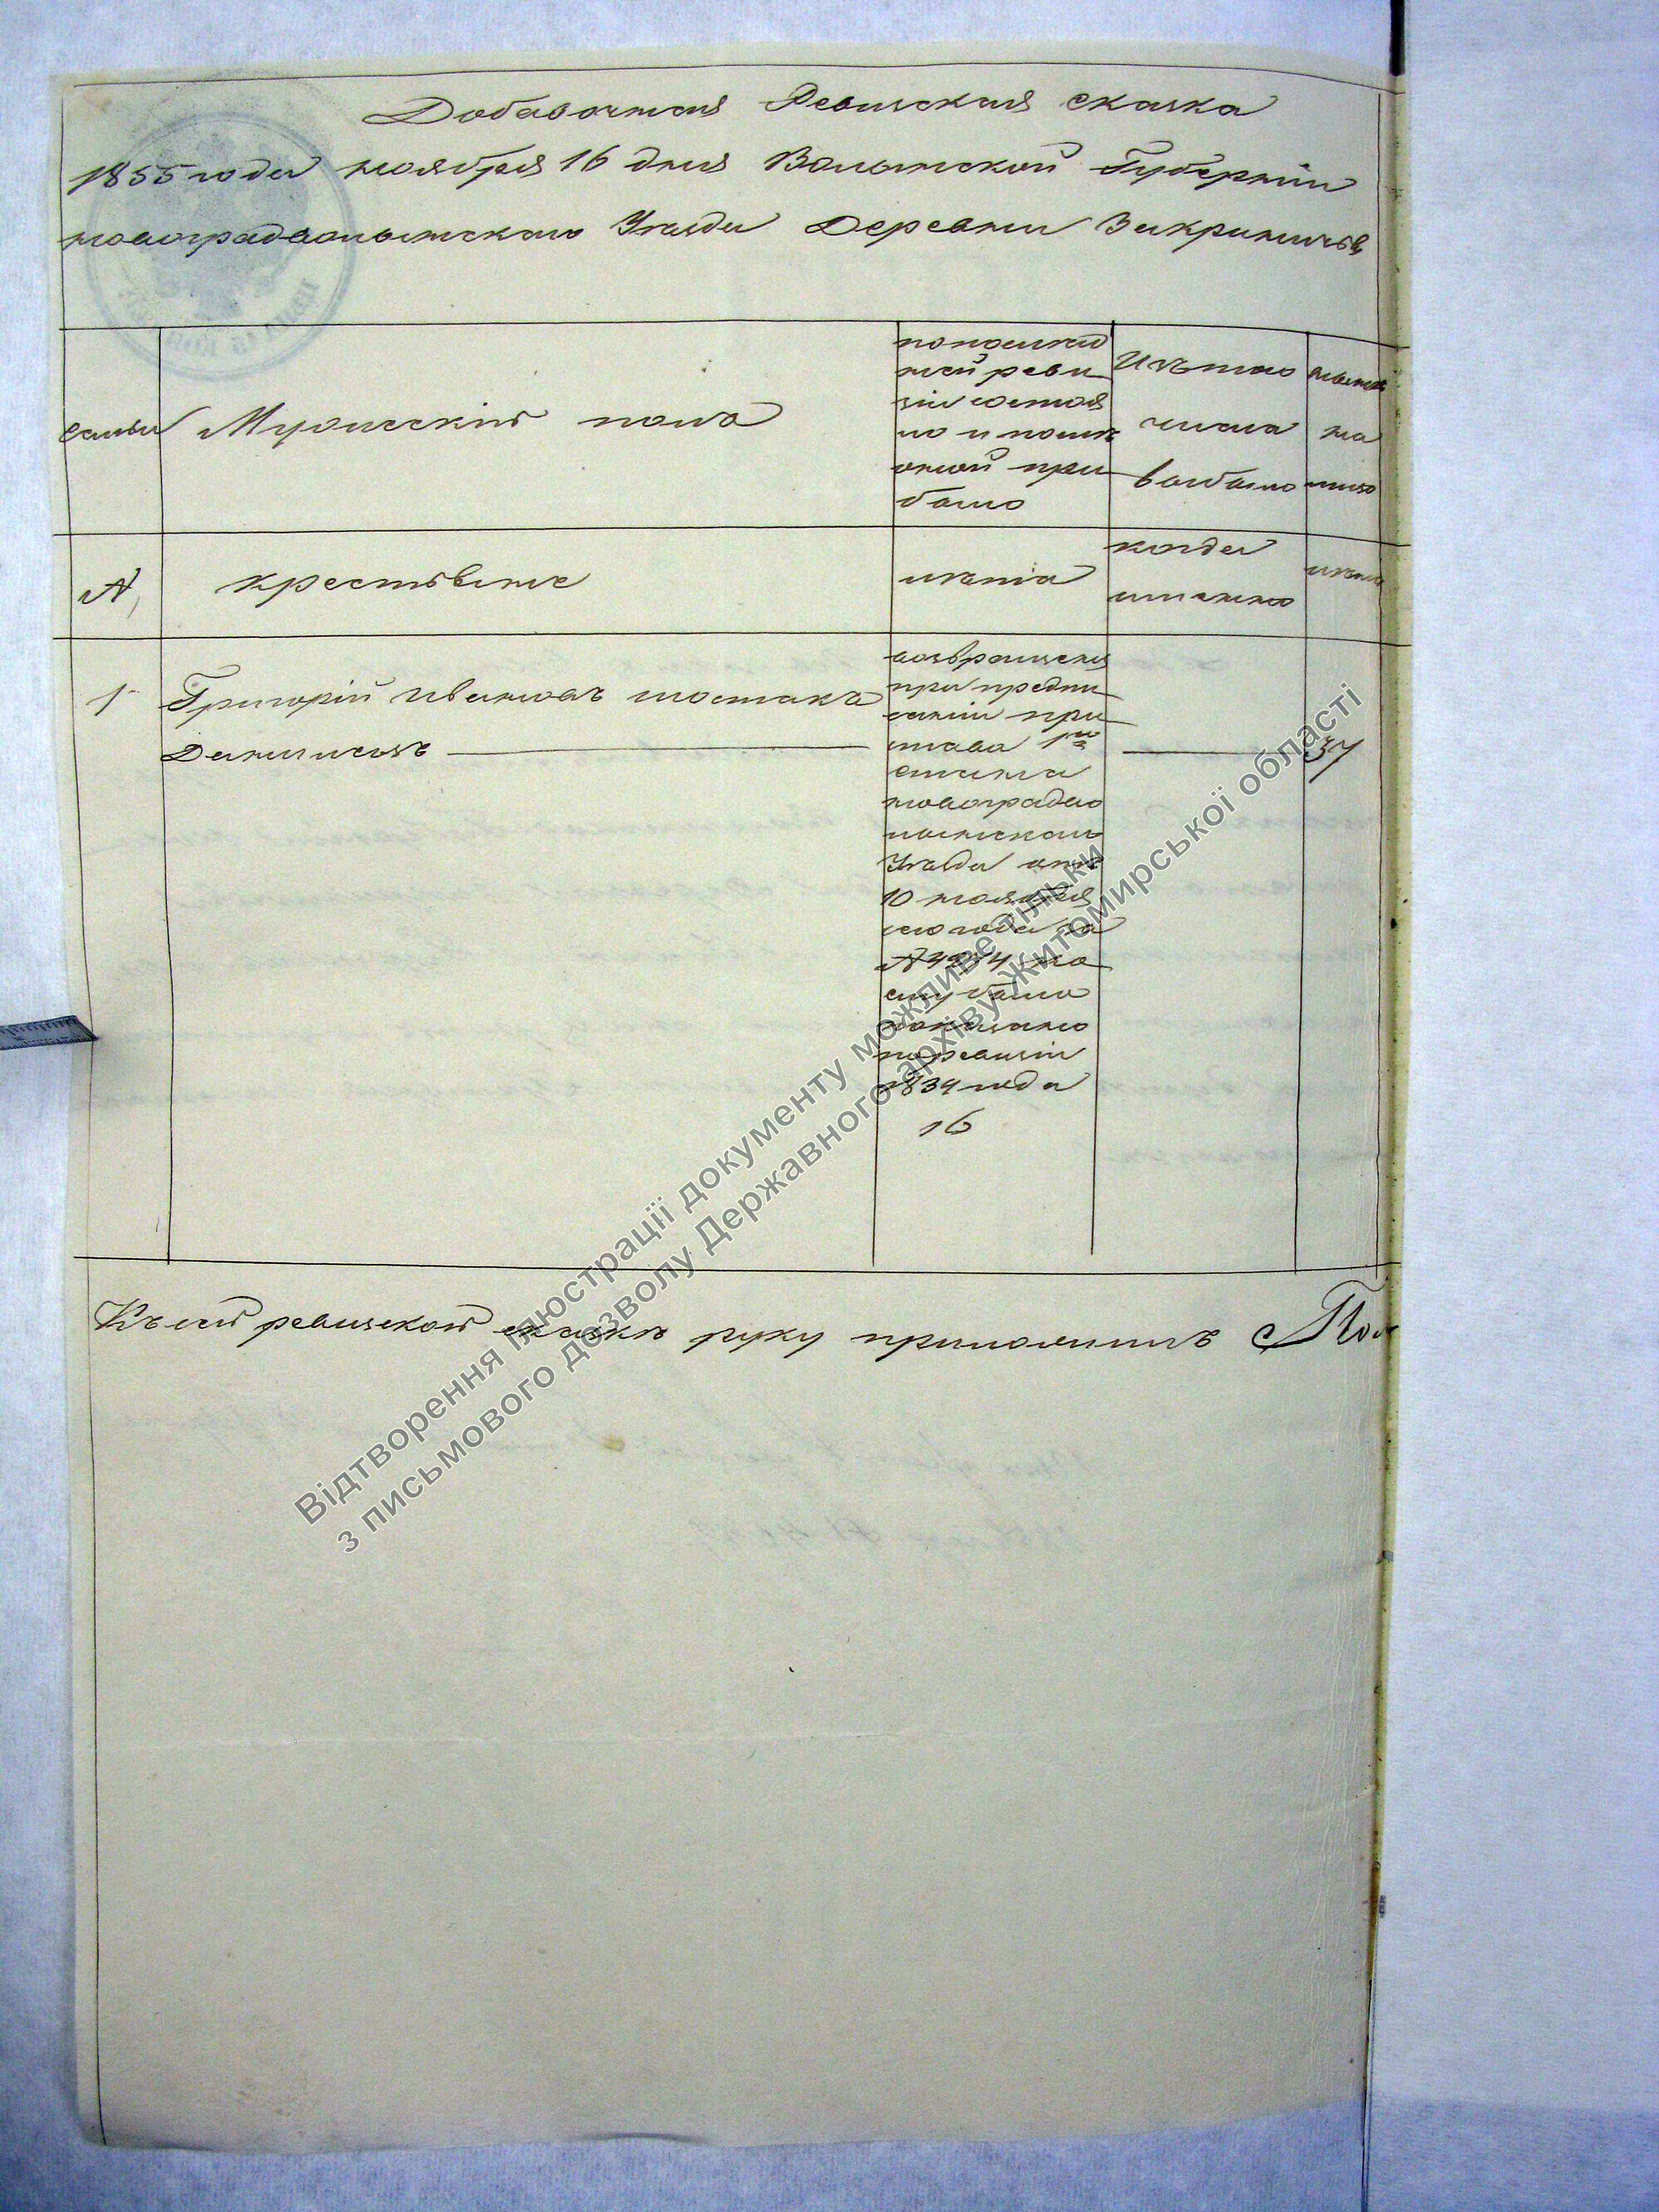 Добавочная Ревиская сказка
1855 года ноября 16 дня Волынской Губернiи
новоградволынского Уезда Деревни Закриничья
семьи
Мужескiй полъ
по послед
ней реви
зiи состоя
ло и после
оной при
было
Изъ того
числа
выбыло
ныне
на
лицо
№
крестьяне
лета
когда
именно
лета
1
Григорiй Ивановъ шостакъ
Даниловъ
возвращенъ
при предпи
санiи при
става 1го
стана
новоградво
лынскаго
Уезда отъ
10 ноября
сего года за
№
ему было
показано
по ревизiи
1834 года
16
37
Къ сей ревизской сказке руку приложилъ
Відтворення ілюстрації документу можливе тільки
з письмового дозволу Державного архіву Житомирської області